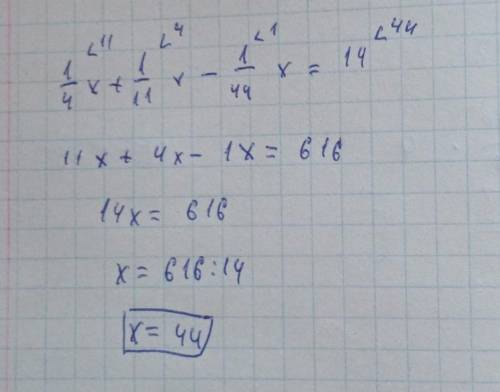 1/4 x + 1/11 x - 1/44 x = 14 ∠11 ∠4 ∠1 ∠44
11x + 4x - 1x = 616
14x = 616
x = 616:14
x = 44